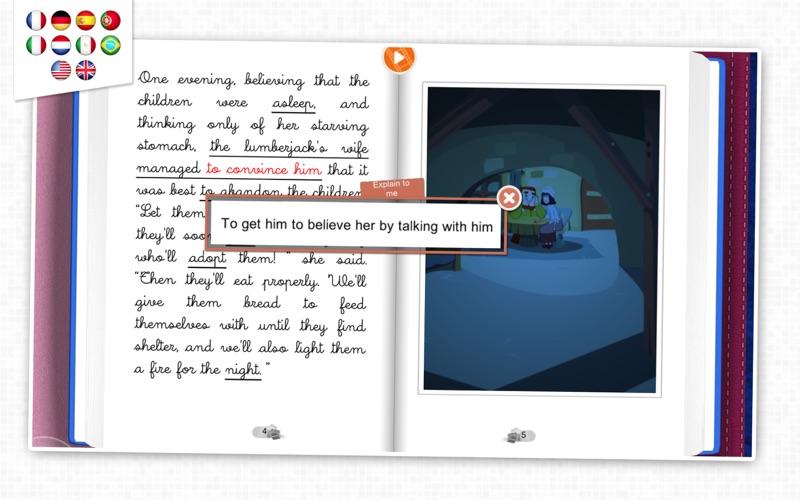 One evening, believing that the
children were asleep, and
thinking only of her starving
stomach, the lumberjack's wife
managed to convince him that it
was best to abandon the children.
"Let them
they'll soon
who'll adopt them! " she said.
"Then they'll eat properly. "We'll
give them bread to feed
themselves with until they find
shelter, and we'll also light them
a fire for the night. "
Explain to
me
To get him to believe her by talking with him
4
5